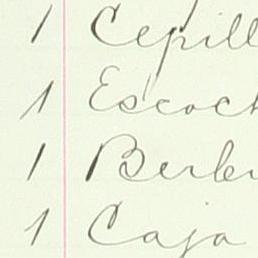 1 Cepill
1 Escoc
1 Berb
1 Caja